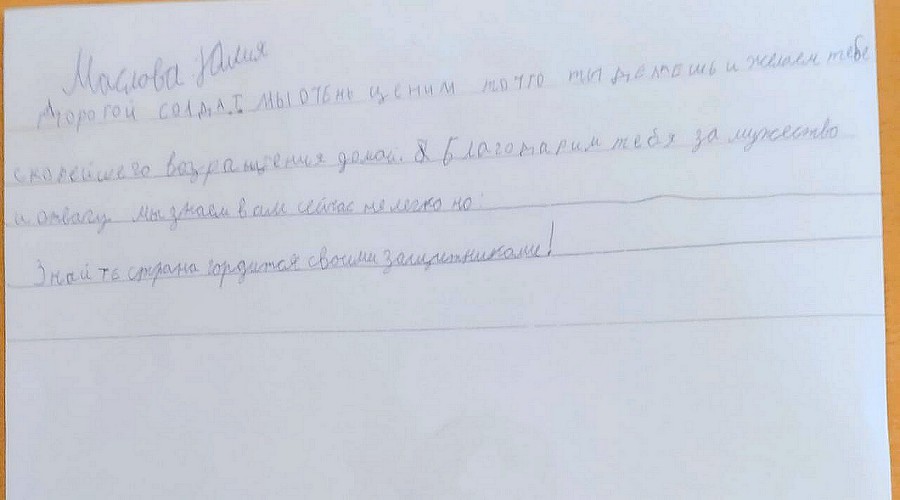 Маслова Юлия
Дорогой солдат мы очень ценим то что ты делаешь и желаем тебе
скорейшего возращения домой. Благодарим тебя за мужество
и отвагу мы знаем вам сейчас не легко но:
Знайте страна гордится своими защитниками!